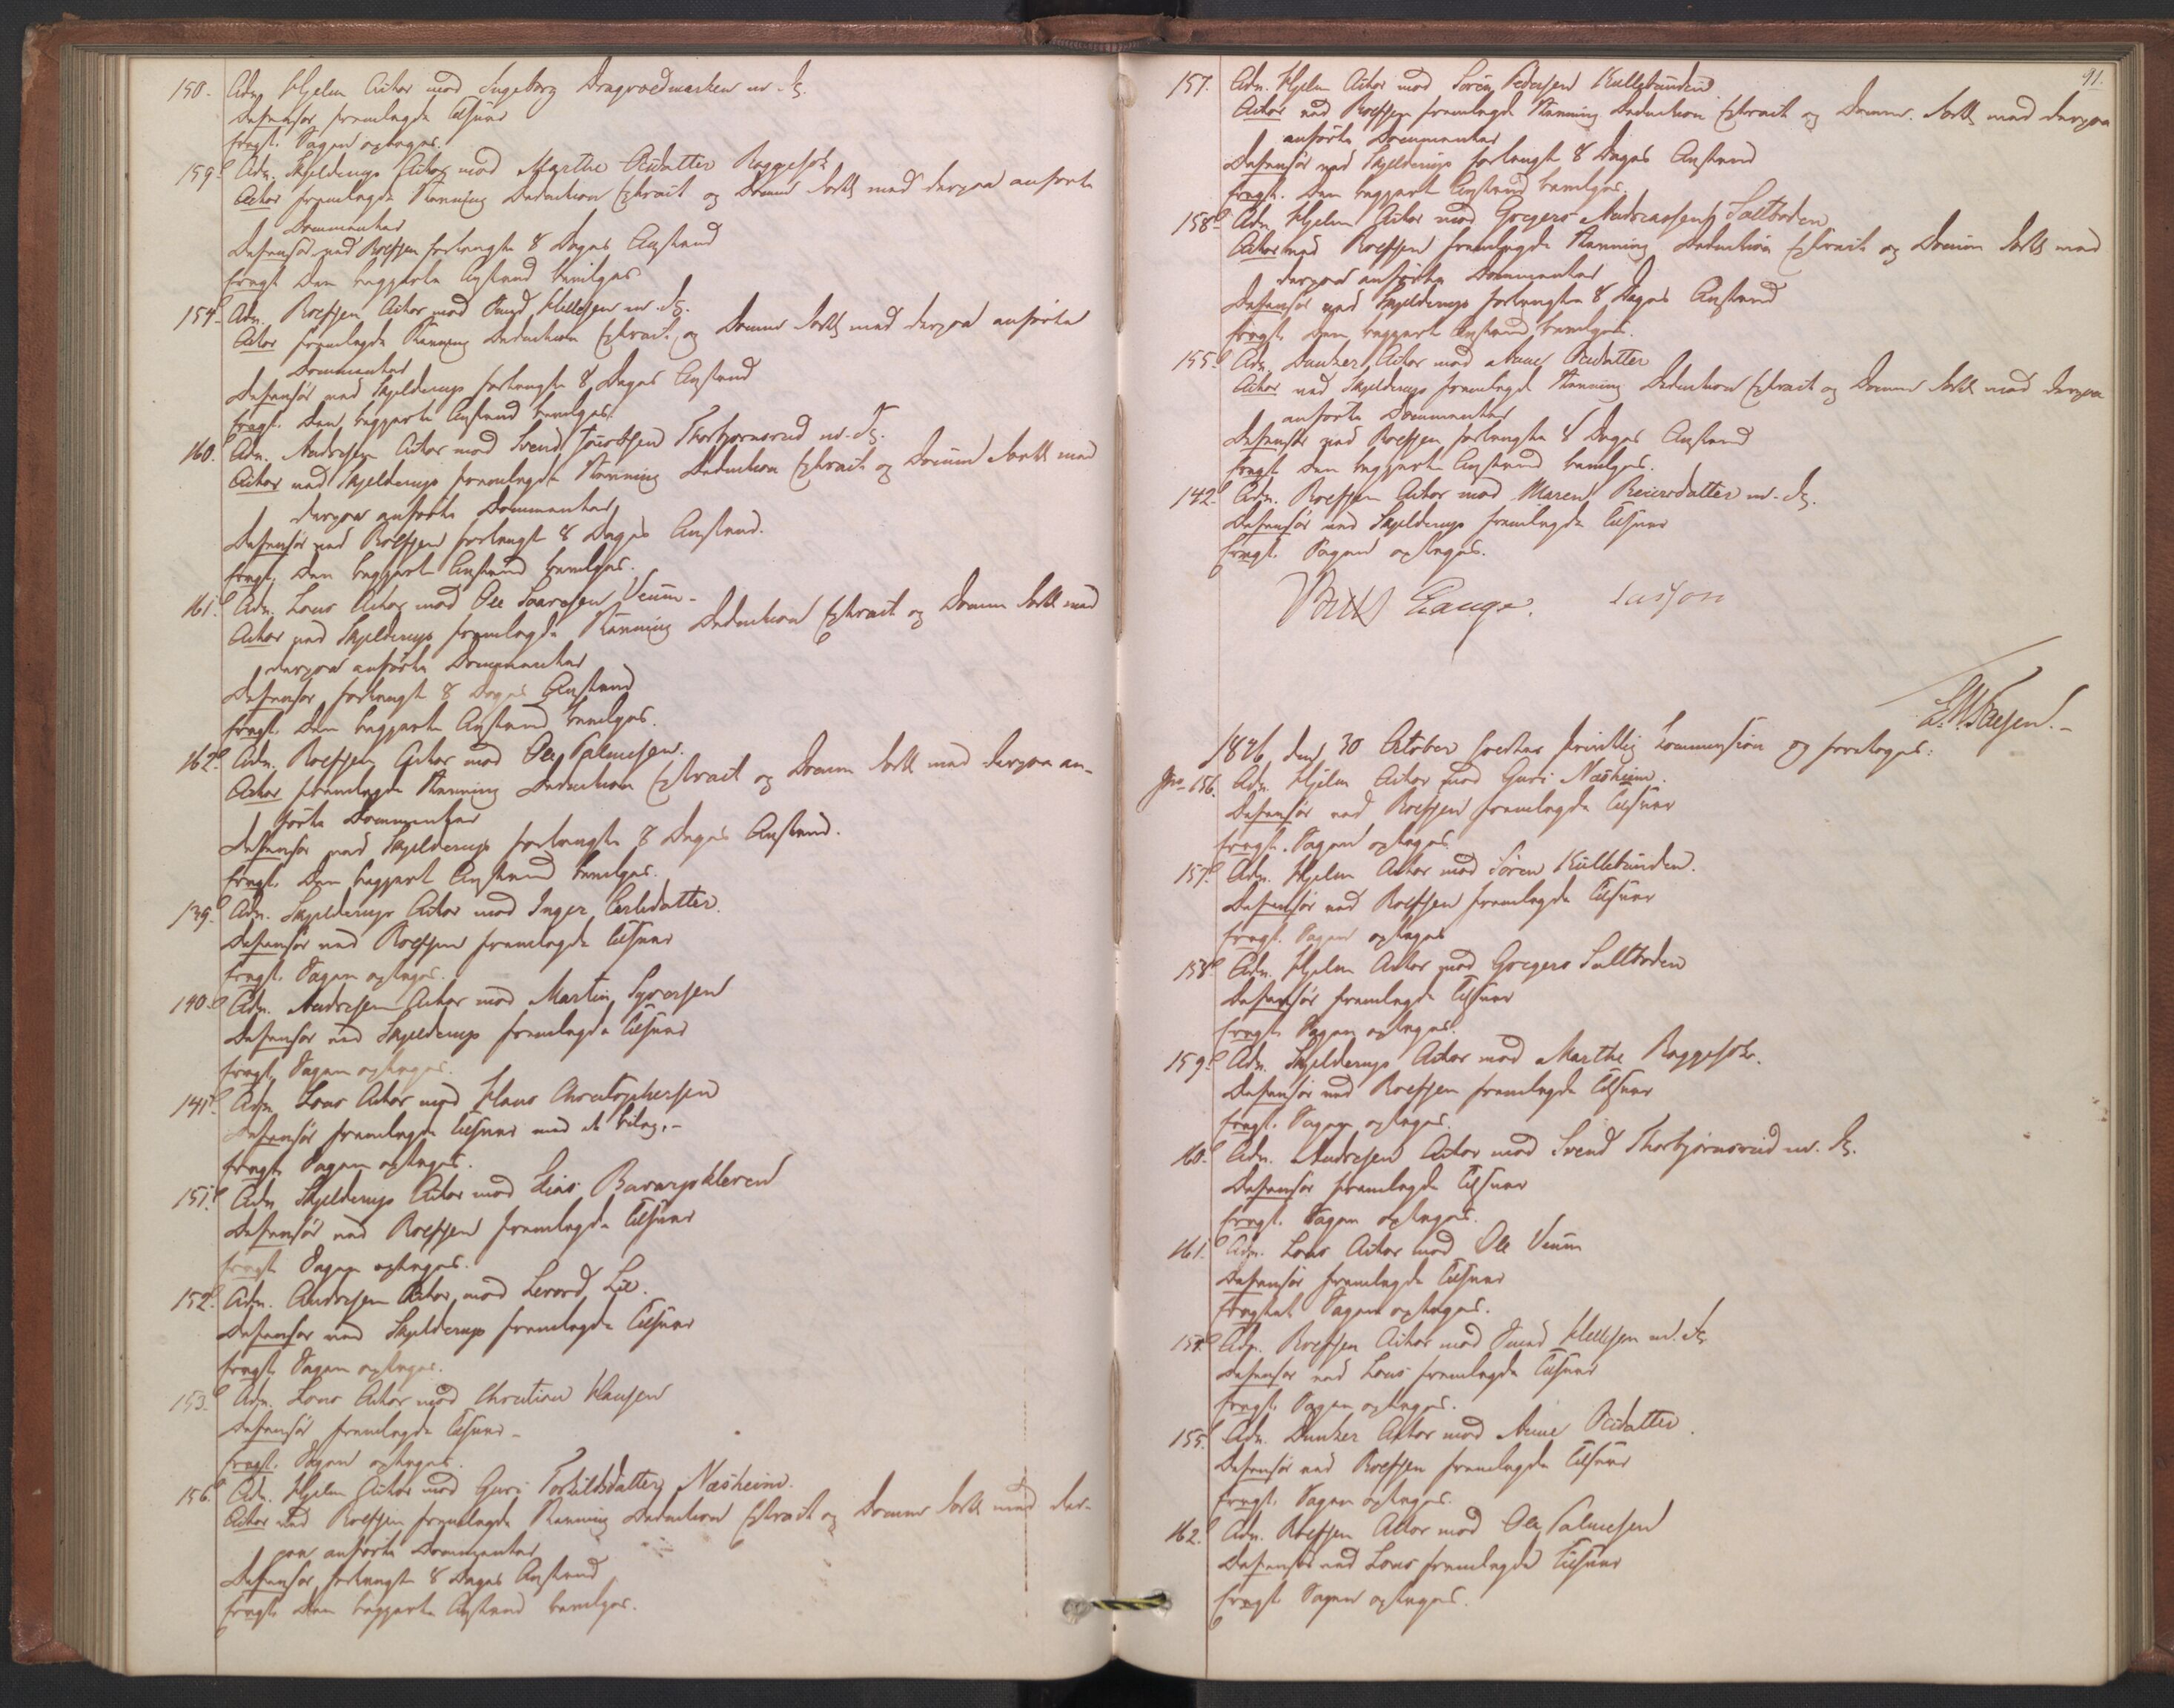 150. Adv. Hjelm Actor mod Ingeborg Dragvoldmarken m. fl.
Defensor fremlagde Tilsvar
fragt. Sagen optages.
159. Adv. Skjelderup Actor mod Marthe Olsdatter Baggefsk
Actor fremlagde Stævning Deduction Extract og Domme samt med derpaa anførte
Documenter
Defensor ved Rolfsen forlangte 8 Dages Anstand
fragt. Den begjærte Anstand bevilges
154. Adv. Rolfsen Actor mod Knud Kittelsen m. fl.
Actor fremlagde Stævning Deduction Extract og Domme samt med derpaa anførte
Documenter
Defensor ved Skjelderup forlangte 8 Dages Anstand
fragt. Den begjærte Anstand bevilges.
160. Adv. Andresen Actor mod Svend Thorbjørnsrud m. fl.
Actor ved Skjelderup fremlagde Stævning Deduction Extract og Domme samt med
derpaa anførte Documenter
Defensor ved Rolfsen forlangte 8 Dages Anstand.
fragt. Den begjærte Anstand bevilges.
161. Adv. Lous Actor mod Ole Veum.
Actor ved Skjelderup fremlagde Stævning Deduction Extract og Domme samt med
derpaa anførte Documenter
Defensor forlangte 8 Dages Anstand
fragt. Den begjærte Anstand bevilges.
162. Adv. Rolfsen Actor mod Ole Palmesen.
Actor fremlagde Stævning Deduction Extract og Domme samt med derpaa an-
førte Documenter
Defensor ved Skjelderup forlangte 8 Dages Anstand.
fragt. Den begjærte Anstand bevilges.
139. Adv. Skjelderup Actor mod Inger Carlsdatter.
Defensor ved Rolfsen fremlagde Tilsvar
fragt. Sagen optages.
140. Adv. Andresen Actor mod Martin Syversen
Defensor ved Skjelderup fremlagde Tilsvar
fragt. Sagen optages.
141. Adv. Lous Actor mod Hans Christophersen
Defensor fremlagde Tilsvar med et bilag.
fragt. Sagen optages.
151. Adv. Skjelderup Actor mod
Defensor ved Rolfsen fremlagde Tilsvar
fragt. Sagen optages.
152. Adv. Andresen Actor mod Lie.
Defensor ved Skjelderup fremlagde Tilsvar
fragt. Sagen optages.
153. Adv. Lous Actor mod Christian Hansen
Defensor fremlagde Tilsvar
fragt. Sagen optages.
156. Adv. Hjelm Actor mod Guri Torkildsdatter Næsheim.
Actor ved Rolfsen fremlagde Stævning Deduction Extract og Domme samt med der-
paa anførte Documenter
Defensor forlangte 8 Dages Anstand
fragt. Den begjærte Anstand bevilges.
91.
157. Adv. Hjelm Actor mod Søren Pedersen Kullebunden
Actor ved Rolfsen fremlagde Stævning Deduction Extract og Domme samt med derpaa
anførte Documenter
Defensor ved Skjelderup forlangte 8 Dages Anstand
fragt. Den begjærte Anstand bevilges.
158. Adv. Hjelm Actor mod Gregers Andreassen Saltboden
Actor ved Rolfsen fremlagde Stævning Deduction Extract og Domme samt med
derpaa anførte Documenter
Defensor ved Skjelderup forlangte 8 Dages Anstand
fragt. Den begjærte Anstand bevilges.
155. Adv. Dunker Actor mod Anne Olsdatter
Actor ved Skjelderup fremlagde Stævning Deduction Extract og Domme samt med derpaa
anførte Documenter
Defensor ved Rolfsen forlangte 8 Dages Anstand
fragt. Den begjærte Anstand bevilges.
142. Adv. Rolfsen Actor mod Maren Reiersdatter m. fl.
Defensor ved Skjelderup fremlagde Tilsvar
fragt. Sagen optages.
Lange. Lasson
1846 den 30 October holdtes skriftlig Commission og foretoges:
No 156. Adv. Hjelm Actor mod Guri Næsheim.
Defensor ved Rolfsen fremlagde Tilsvar
fragt. Sagen optages
157. Adv. Hjelm Actor mod Søren Kullebunden.
Defensor ved Rolfsen fremlagde Tilsvar
fragt. Sagen optages
158. Adv. Hjelm Actor mod Gregers Saltboden
Defensor fremlagde Tilsvar
fragt. Sagen optages.
159. Adv. Skjelderup Actor mod Marthe Baggefsk.
Defensor ved Rolfsen fremlagde Tilsvar
fragt. Sagen optages.
160. Adv. Andresen Actor mod Svend Thorbjørnsrud m. fl.
Defensor fremlagde Tilsvar
fragt. Sagen optages.
161. Adv. Lous Actor mod Ole Veum
Defensor fremlagde Tilsvar
fragtet Sagen optages.
154. Adv. Rolfsen Actor mod Knud Kittelsen m. fl.
Defensor ved Lous fremlagde Tilsvar
fragt. Sagen optages.
155. Adv. Dunker Actor mod Anne Olsdatter.
Defensor ved Rolfsen fremlagde Tilsvar
fragt. Sagen optages.
162. Adv. Rolfsen Actor mod Ole Palmesen
Defensor ved Lous fremlagde Tilsvar
fragt. Sagen optages.